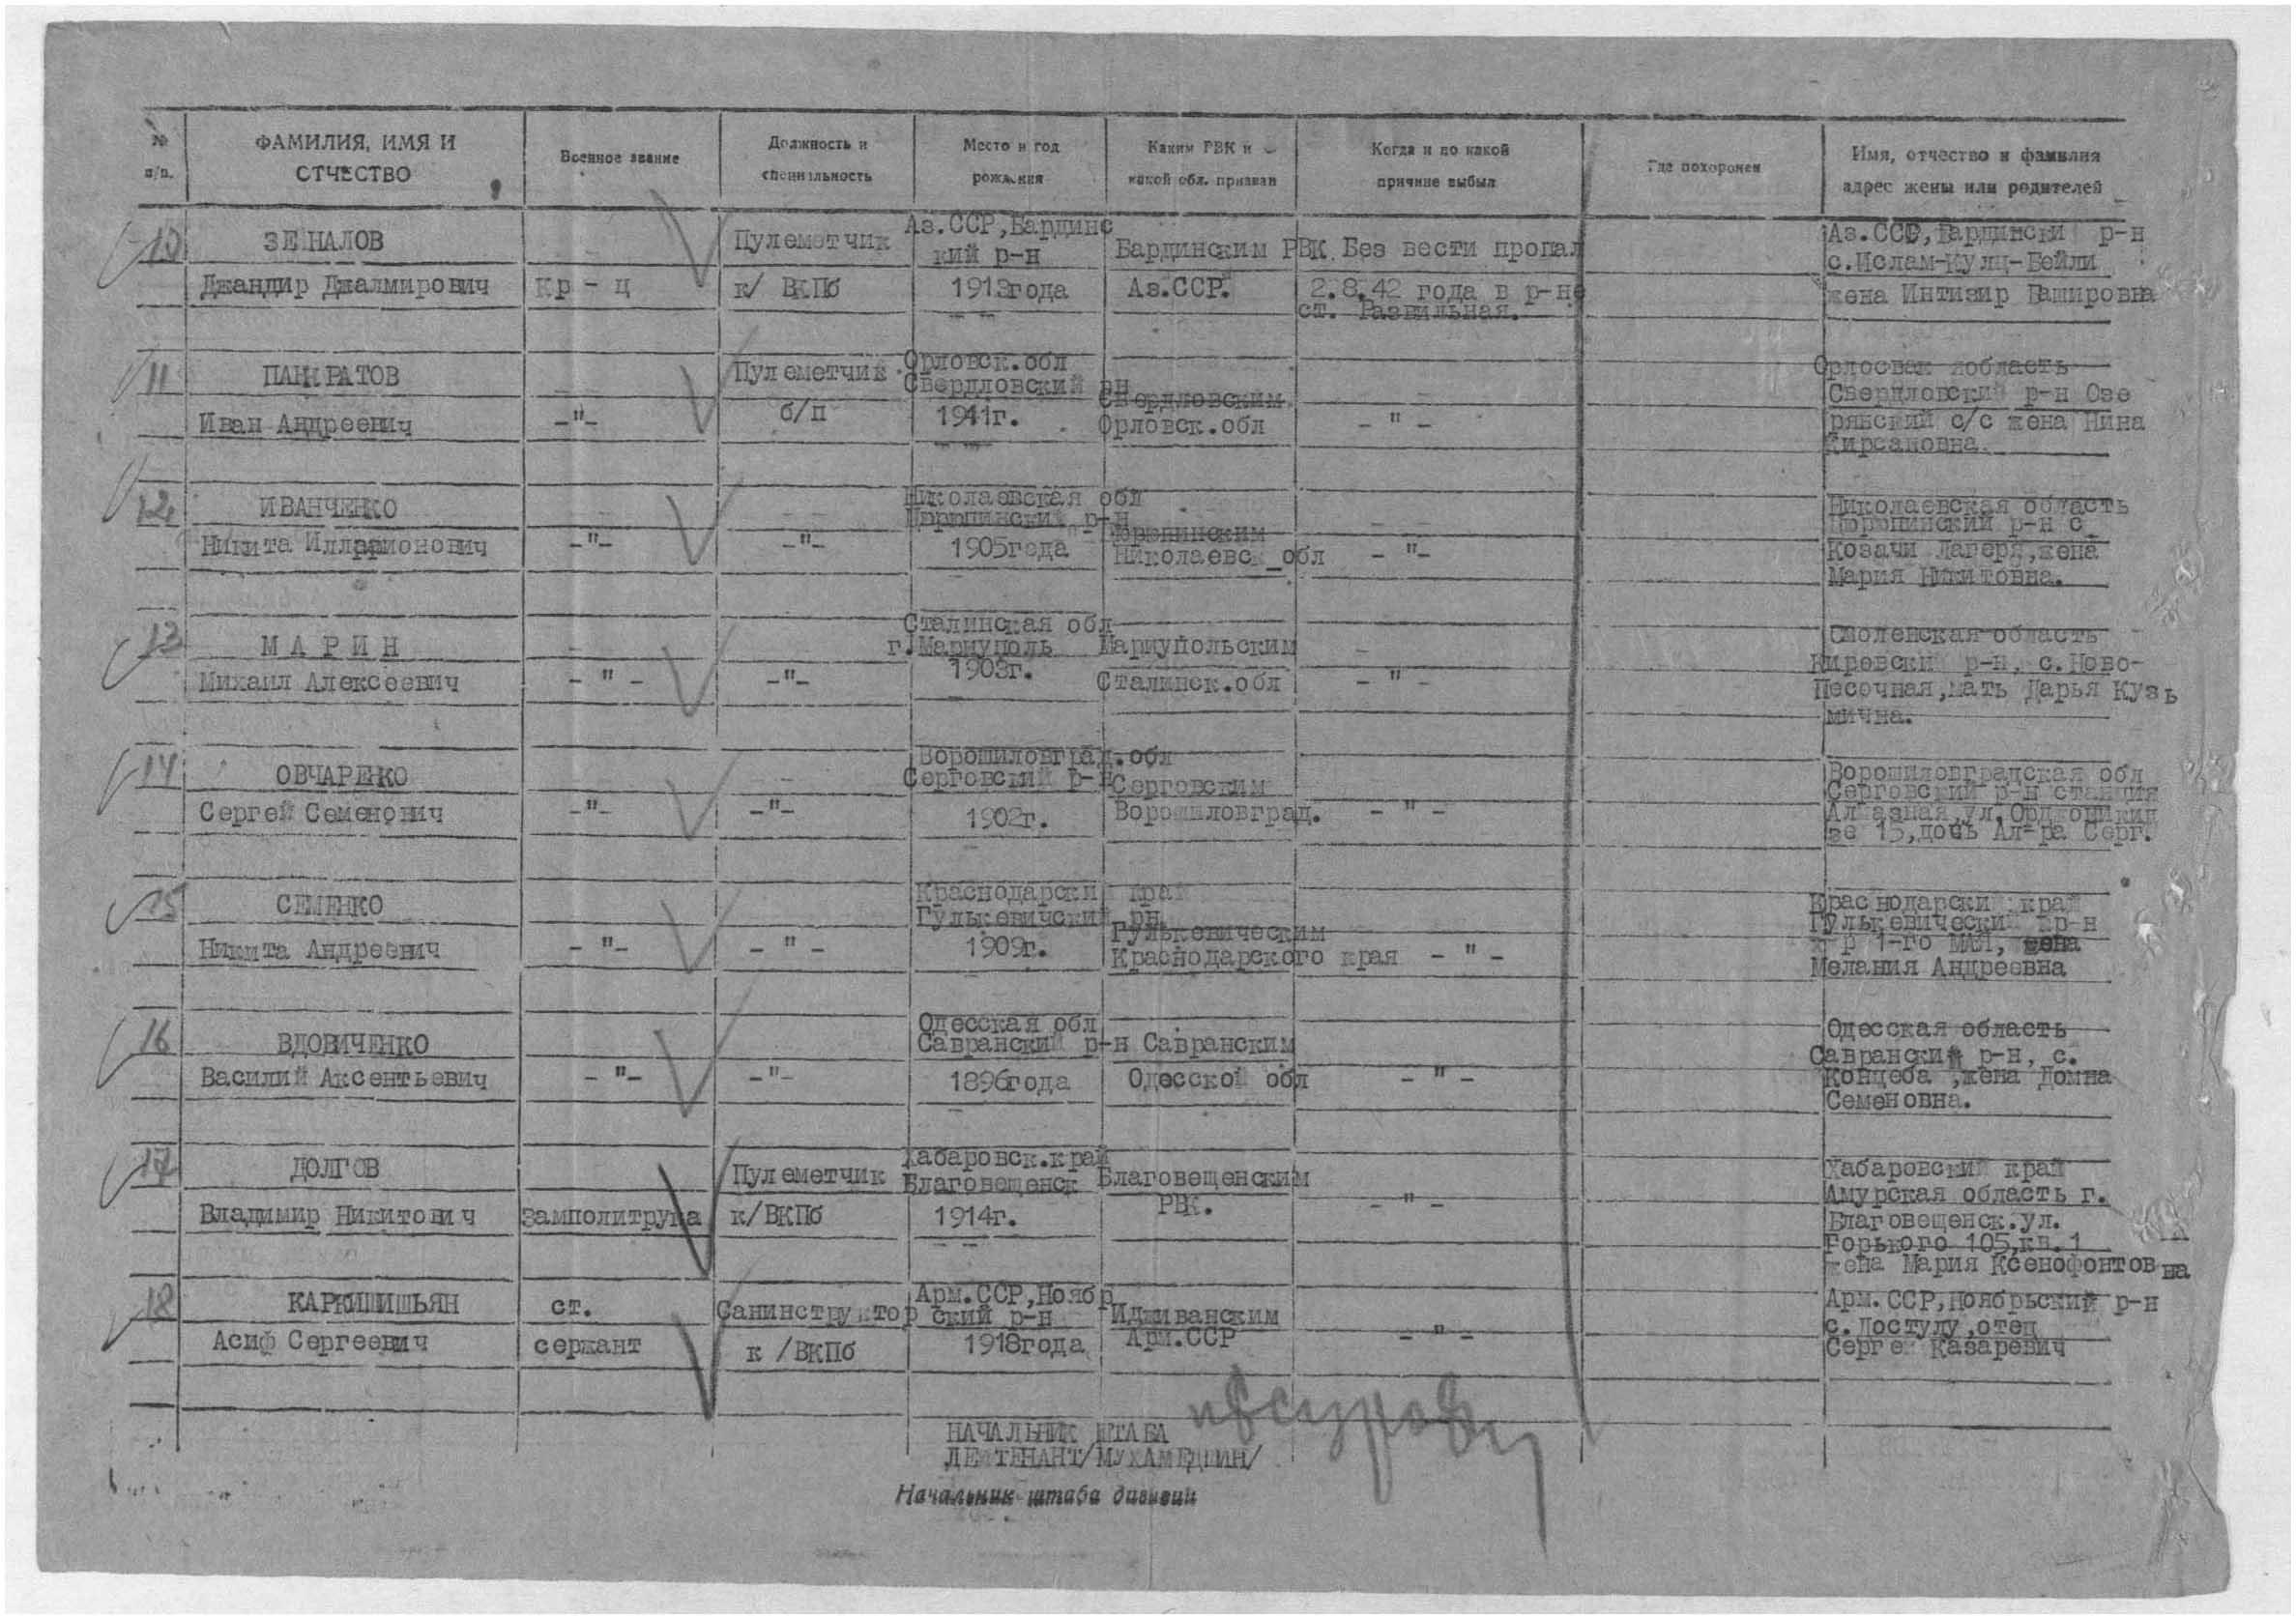 № п/п.
ФАМИЛИЯ, ИМЯ И ОТЧЕСТВО
Военное звание
Должность и специальность
Место и год рождения
Каким РВК и какой обл. призван
Когда и по какой причине выбыл
Где похоронен
Имя, отчество и фамилия адрес жены или родителей
10
ЗЕЙНАЛОВ
Джандир Джалмирович
кр - ц
Пулеметчик
к/ ВКПб
Аз.ССР,Бардинс
кий р-н
1913года
Бардинским РВК
Аз.ССР.
Без вести пропал
2.8.42 года в р-не
ст. Развильная.
Аз.ССС,Бардински р-н
с.Ислам-Кулц-Бейли
жена Интизир Башировна
11
ПАНКРАТОВ
Иван Андреевич
-"-
Пулеметчик
б/п
Орловск.обл
Свердловский рн
1911г.
Свердловским
Орловск.обл
- " -
Свердловский р-н Озе
рянский с/с жена Нина
Кирсановна.
12
ИВАНЧЕНКО
Никита Илларионович
-"-
-"-
Николаевская обл
Цюрюпинский р-н
1905года
Цюрюпинским
Николаевск_обл
- "-
Николаевская область
Цюрюпинский р-н с
Козачи Лагеря,жена
Мария Никитовна.
13
МАРИН
Михаил Алексеевич
- " -
-"-
Сталинская обл
г.Мариуполь
1903г.
Мариупольским
Сталинск.обл
- " -
Смоленская область
Кировски р-н, с.Ново-
Песочная,мать Дарья Кузь
мична.
14
ОВЧАРЕНКО
Сергей Семенович
-"-
-"-
Ворошиловград.обл
Серговский р-н
1902г.
Серговским
Ворошиловград.
- " -
Ворошиловградская обл
Серговский р-н станция
Алмазная,ул.Орджоникид
зе 15,дочь Ал-ра Серг.
15
СЕМЕНКО
Никита Андреевич
- "-
- " -
Краснодарский край
Гулькевичский рн
1909г.
Гулькевическим
Краснодарского края
- " -
Краснодарский край
Гулькевический р-н
1-го МАЯ, жена
Мелания Андреевна
16
ВДОВИЧЕНКО
Василий Аксентьевич
- "-
-"-
Одесская обл
Савранский р-н
1896года
Савранским
Одесской обл
- " -
Одесская область
Савранский р-н, с.
Концеба ,жена Домна
Семеновна.
17
ДОЛГОВ
Владимир Никитович
замполитрука
Пулеметчик
к/ВКПб
Хабаровск.край
Благовещенск
1914г.
Благовещенским
РВК.
- " -
Хабаровский край
Амурская область г.
Благовещенск.ул.
Горького 105,кв.1
жена Мария Ксенофонтовна
18
КАРКИШИШЬЯН
Асиф Сергеевич
ст.
сержант
Санинструктор
к /ВКПб
Арм.ССР,Ноябр
ский р-н
1918года
Идживанским
Арм.ССР
- " -
Арм.ССР,Ноябрьский р-н
с.Достулу,отец
Сергей Казаревич
НАЧАЛЬНИК ШТАБА
ЛЕЙТЕНАНТ/МУХАМЕДШИН/
Начальник штаба дивизии